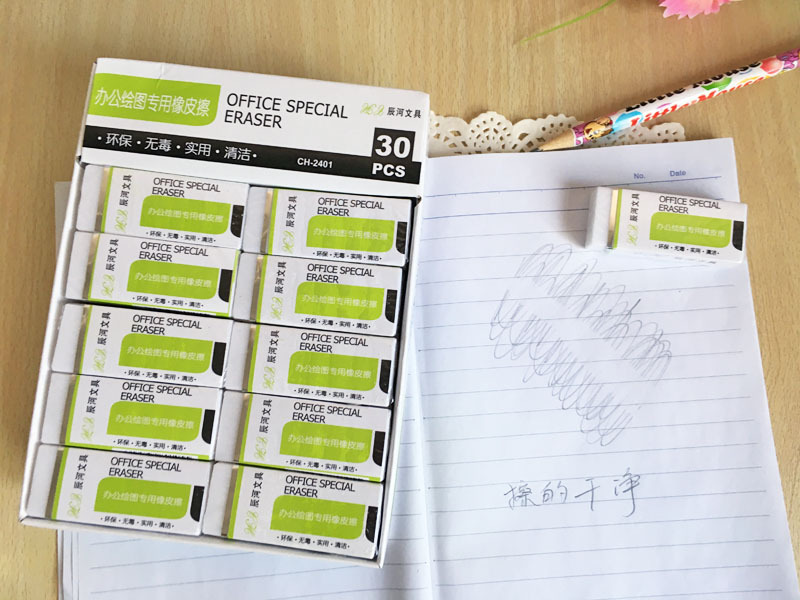 办公绘图专用橡皮擦
OFFICE SPECIAL
ERASER
辰河文具
·环保·无毒·实用·清洁·
CH-2401
30
PCS
辰河文具
OFFICE SPECIAL
ERASER
办公绘图专用橡皮擦
·环保·无毒·实用·清洁·
辰河文具
OFFICE SPECIAL
ERASER
办公绘图专用橡皮擦
·环保·无毒·实用·清洁·
辰河文具
OFFICE SPECIAL
ERASER
办公绘图专用橡皮擦
·环保·无毒·实用·清洁·
辰河文具
OFFICE SPECIAL
ERASER
办公绘图专用橡皮擦
·环保·无毒·实用·清洁·
辰河文具
OFFICE SPECIAL
ERASER
办公绘图专用橡皮擦
·环保·无毒·实用·清洁·
辰河文具
OFFICE SPECIAL
ERASER
办公绘图专用橡皮擦
·环保·无毒·实用·清洁·
辰河文具
OFFICE SPECIAL
ERASER
办公绘图专用橡皮擦
·环保·无毒·实用·清洁·
辰河文具
OFFICE SPECIAL
ERASER
办公绘图专用橡皮擦
·环保·无毒·实用·清洁·
辰河文具
OFFICE SPECIAL
ERASER
办公绘图专用橡皮擦
·环保·无毒·实用·清洁·
辰河文具
OFFICE SPECIAL
ERASER
办公绘图专用橡皮擦
·环保·无毒·实用·清洁·
No. Date
辰河文具
OFFICE SPECIAL
ERASER
办公绘图专用橡皮擦
·环保·无毒·实用·清洁·
擦的干净